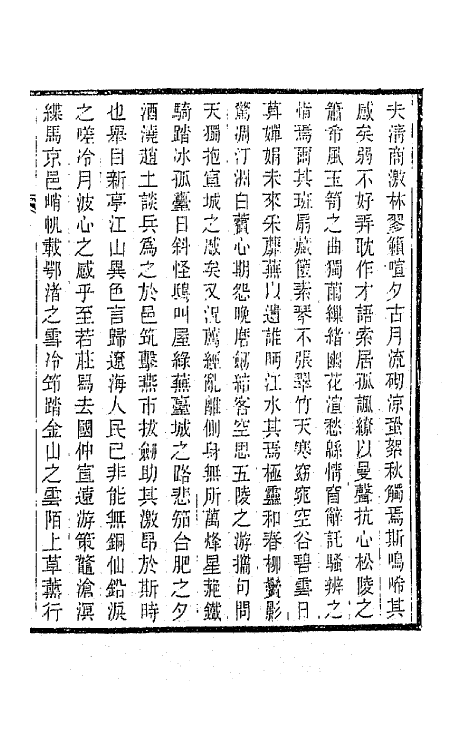 夫清商激林寥籟喧夕古月流砌涼蛩絮秋觸焉斯鳴唏其
感矣弱不好弄耽作才語索居孤諷繚以曼聲抗心松陵之
簫希風玉笥之曲獨繭繅緒幽花渲愁緜情奮辭託騷辨之
惰焉爾其班扇藏篋素琴不張翠竹天寒窈窕空谷碧雲日
莫嬋娟未來釆蘼蕪以遺誰眄江水其焉極靈和春柳鬢影
驚凋汀洲白蘋心期怨晚磨劒結客空思五陵之游擕句問
天獨抱宣城之感矣又況薦經亂離側身無所萬烽星蘤鐵
騎踏冰孤臺日斜怪鴟叫屋綠蕪臺城之路悲笳合肥之夕
酒澆趙土談兵爲之於邑筑擊燕市拔劒助其激昂於斯時
也舉目新亭江山異色言歸遼海人民已非能無銅仙鉛淚
之嗟冷月波心之感乎至若莊舄去國仲宣遠游策蹇滄溟
緤馬京邑峭帆載鄂渚之雲冷笻踏金山之雲陌上草薰行